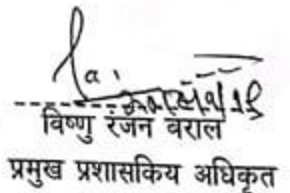 विष्णु रंजन वराल
प्रमुख प्रशासकिय अधिकृत